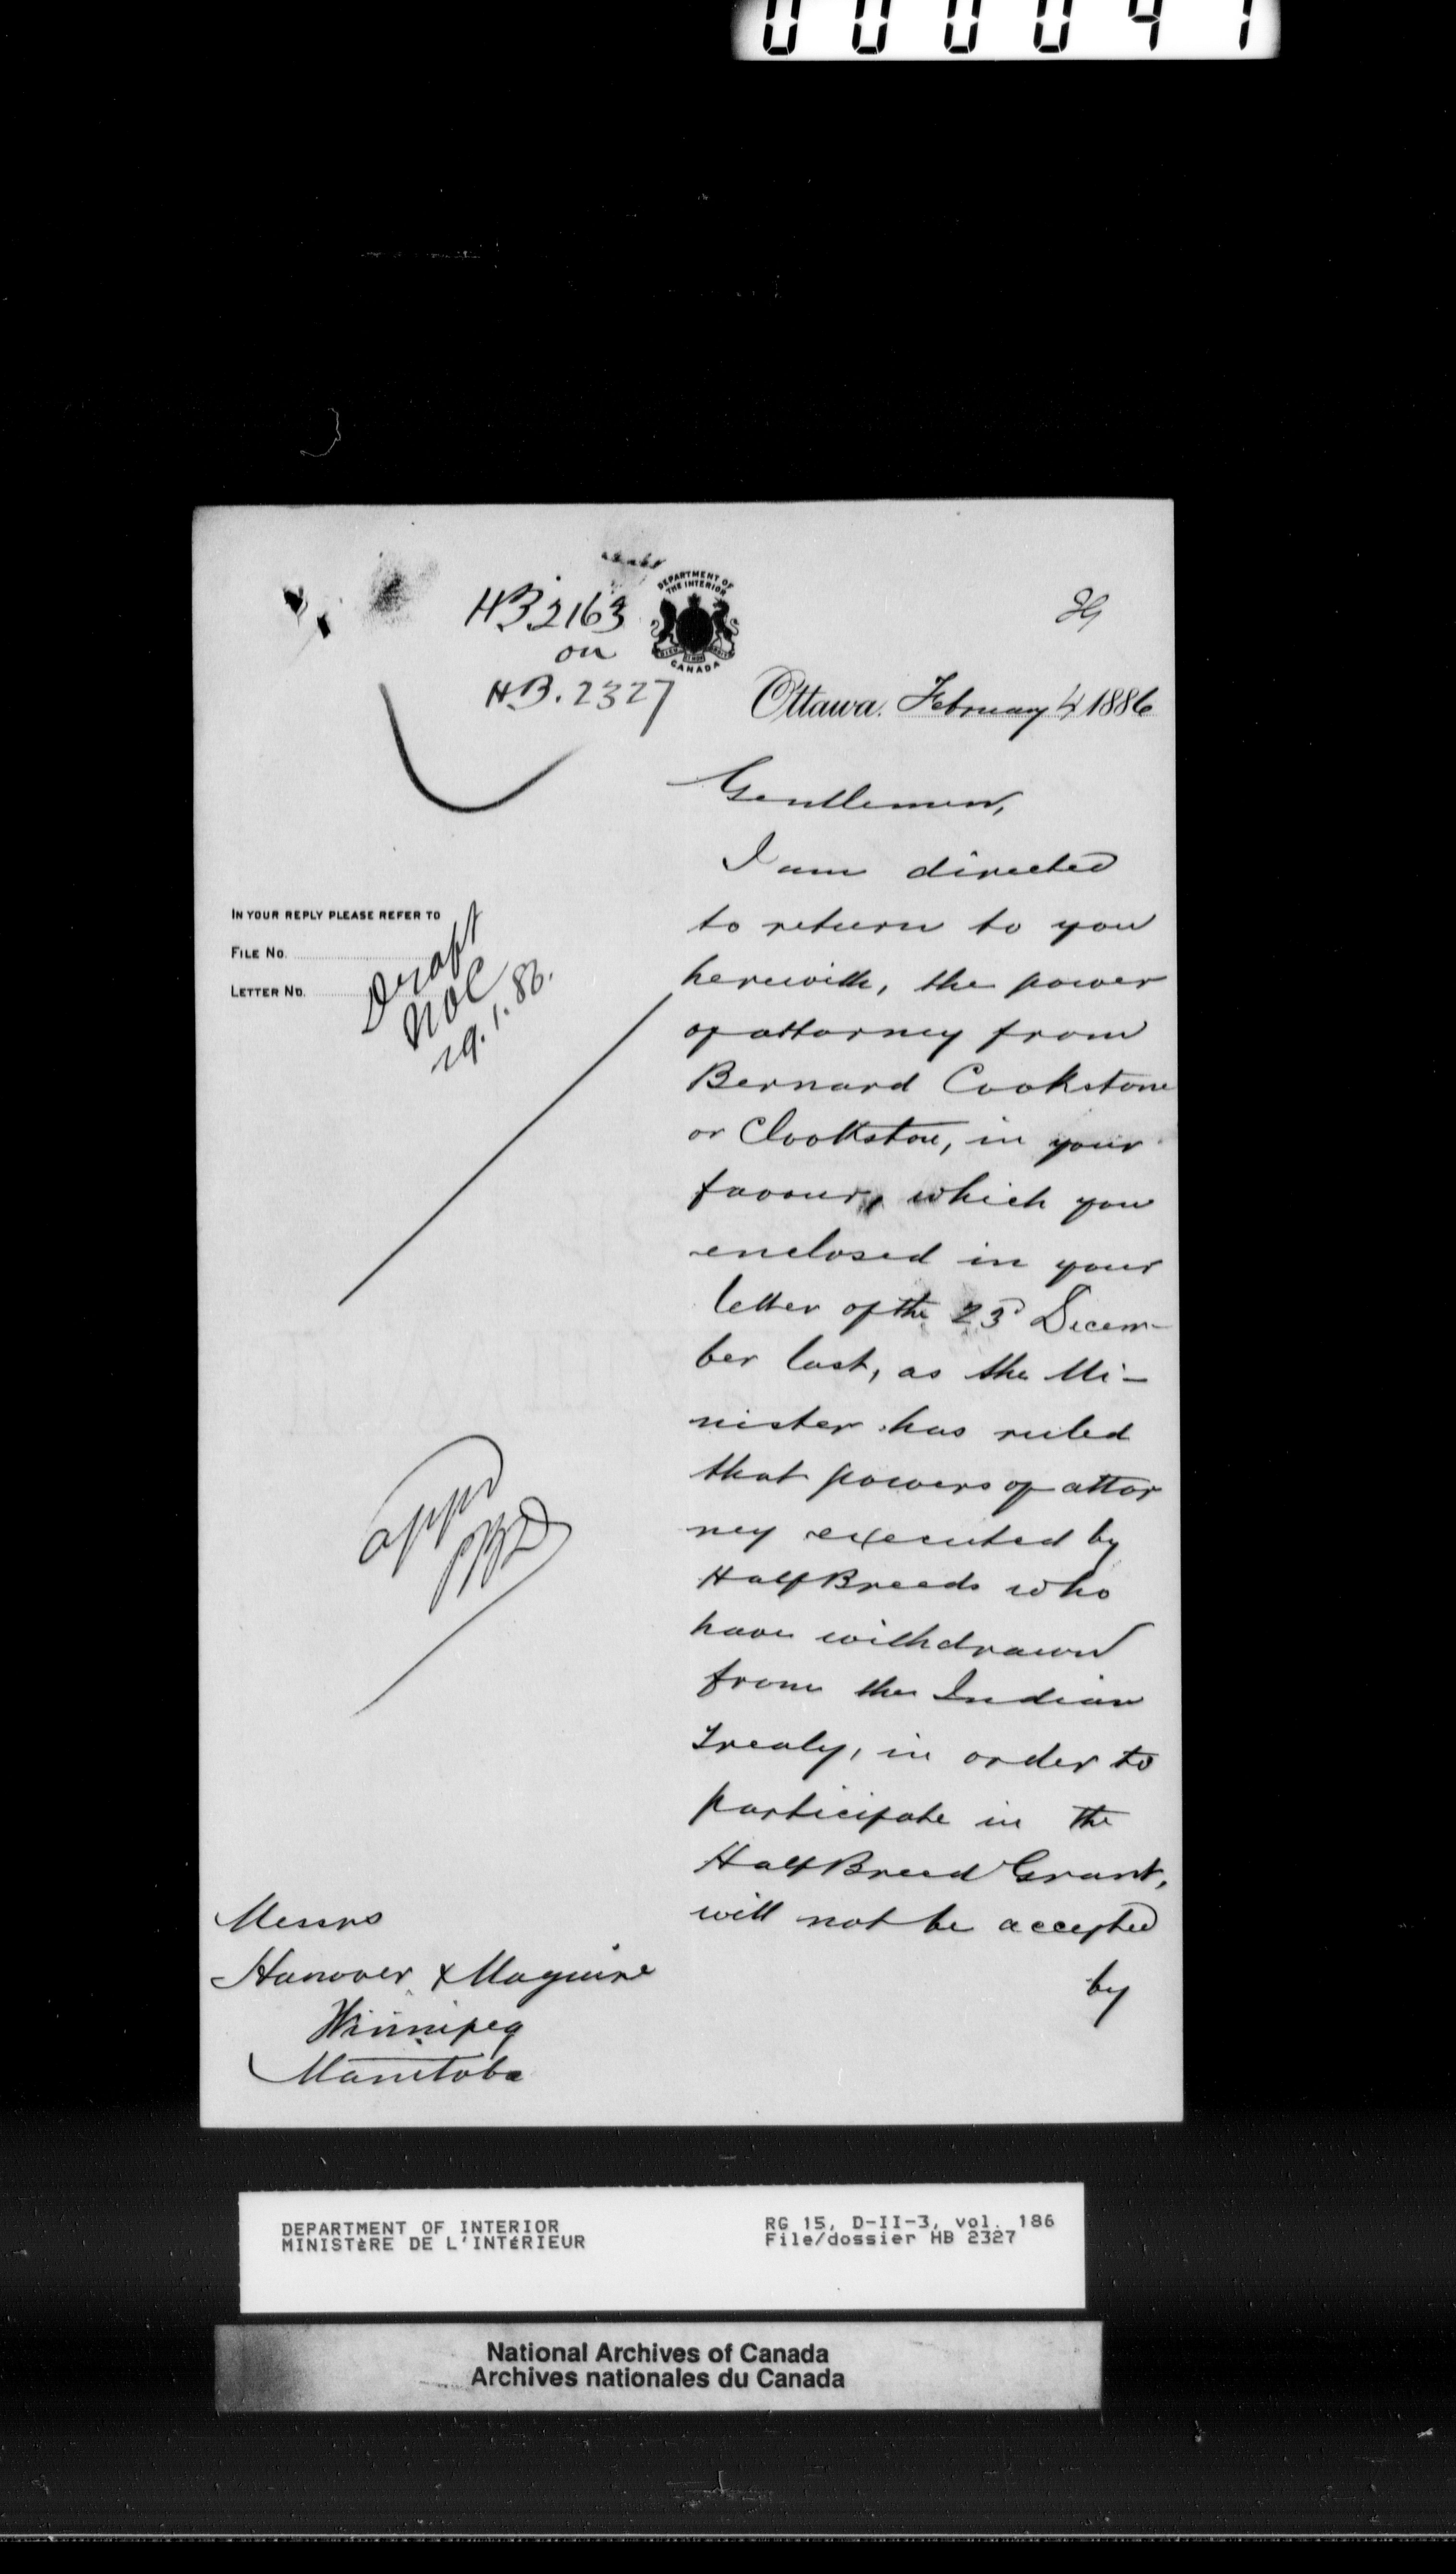 000041
HB 2163
on
HB. 2327
DEPARTMENT OF
THE INTERIOR
CANADA
Ottawa. February 4 1886
Gentlemen,
I am directed
to return to you
herewith, the power
of attorney from
Bernard Cookstone
or Clookstone, in your
favour, which you
enclosed in your
letter of the 23d Decem-
ber last, as the Mi-
nister has ruled
that powers of attor
ney executed by
Half Breeds who
have withdrawn
from the Indian
Treaty, in order to
participate in the
Half Breed Grant,
will not be accepted
by
IN YOUR REPLY PLEASE REFER TO
FILE NO.
LETTER NO.
Draft
29.1.86.
appd
Messrs
Hanover & Maguire
Winnipeg
Manitoba
DEPARTMENT OF INTERIOR
MINISTÈRE DE L'INTÉRIEUR
RG 15, D-II-3, vol. 186
File/dossier HB 2327
National Archives of Canada
Archives nationales du Canada